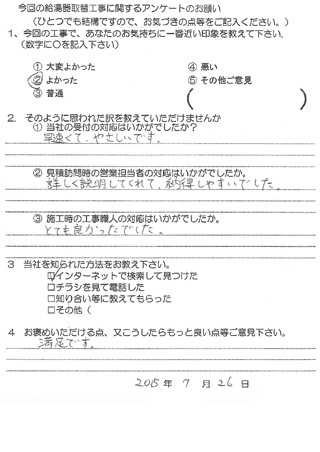 今回の給湯器取替工事に関するアンケートのお願い
(ひとつでも結構ですので、お気づきの点等をご記入ください。)
1、今回の工事で、あなたのお気持ちに一番近い印象を教えて下い.
(数字に○を記入下さい)
① 大変よかった ④ 悪い
② よかった ⑤ その他ご意見
③ 普通 ( )
2. そのように思われた訳を教えていただけませんか
① 当社の受付の対応はいかがでしたか?
早速くて、やさしいです。
② 見積訪問時の営業担当者の対応はいかがでしたか。
詳しく説明してくれて、納得しやすいでした。
③ 施工時の工事職人の対応はいかがでしたか。
とても良かったでした。
3 当社を知られた方法をお教え下さい。
☑インターネットで検索して見つけた
□チラシを見て電話した
□知り合い等に教えてもらった
□その他(
4 お褒めいただける点、又こうしたらもっと良い点等ご意見下さい。
満足です。
2015 年 7 月 26 日